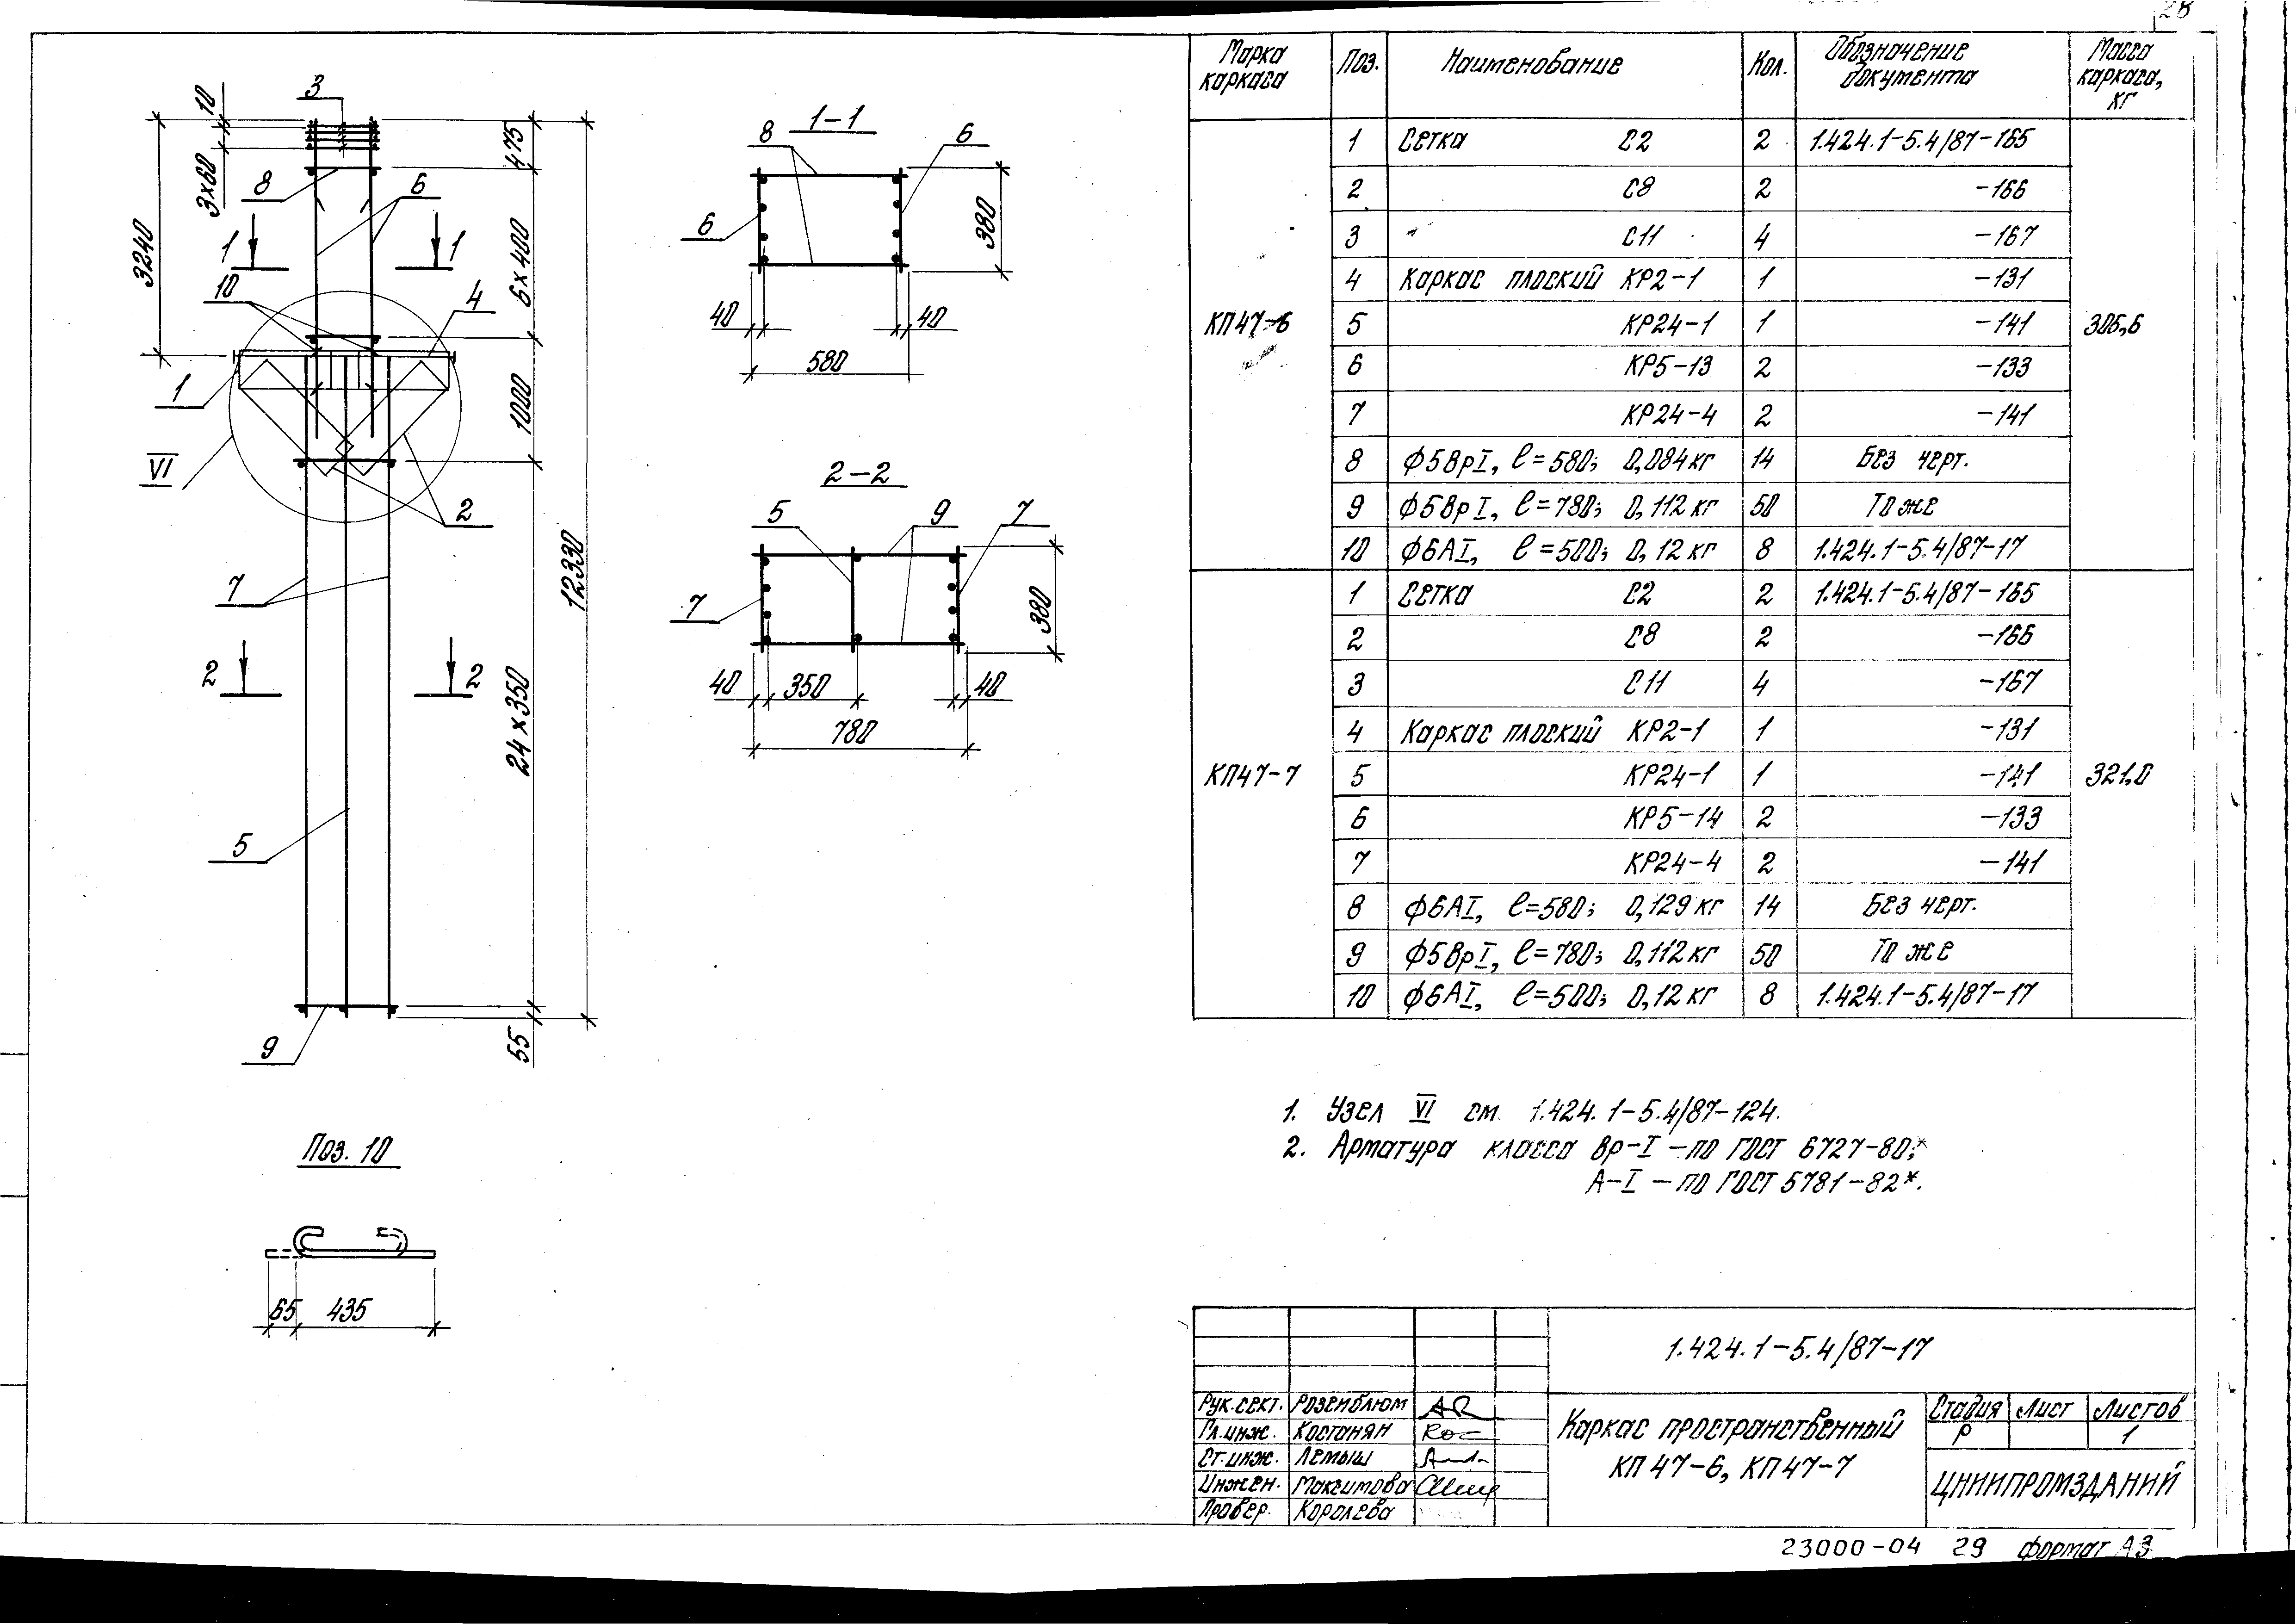 28
Марка каркаса Поз. Наименование Кол. Обозначение документа Масса каркаса, кг
КП47-6 305,6
1 Сетка С2 2 1.424.1-5.4/87-165
2 С8 2 -166
3 С11 4 -167
4 Каркас плоский КР2-1 1 -131
5 КР24-1 1 -141
6 КР5-13 2 -133
7 КР24-4 2 -141
8 ф5ВрI, ℓ=580; 0,084кг 14 Без черт.
9 ф5ВрI, ℓ=780; 0,112кг 50 То же
10 ф6АI, ℓ=500; 0,12кг 8 1.424.1-5.4/87-17
КП47-7 321,0
1 Сетка С2 2 1.424.1-5.4/87-165
2 С8 2 -166
3 С11 4 -167
4 Каркас плоский КР2-1 1 -131
5 КР24-1 1 -141
6 КР5-14 2 -133
7 КР24-4 2 -141
8 ф6АI, ℓ=580; 0,129кг 14 Без черт.
9 ф5ВрI, ℓ=780; 0,112кг 50 То же
10 ф6АI, ℓ=500; 0,12кг 8 1.424.1-5.4/87-17
3
10
3х60
8
6
475
3240
1 1
6х400
10
4
1
1000
VI
2
12330
7
2 2
24х350
5
9
55
1-1
8
6
6
380
40 40
580
2-2
5 9 7
7
380
40 350 40
780
Поз. 10
65 435
1. Узел VI см. 1.424.1-5.4/87-124.
2. Арматура класса Вр-I -по ГОСТ 6727-80;*
А-I -по ГОСТ 5781-82*.
1.424.1-5.4/87-17
Рук.сект. Розенблюм
Гл.инж. Костанян
Ст.инж. Лемыш
Инжен. Максимова
Провер. Королева
Каркас пространственный
КП 47-6, КП47-7
Стадия Лист Листов
Р 1
ЦНИИПРОМЗДАНИЙ
23000-04 29 формат А3